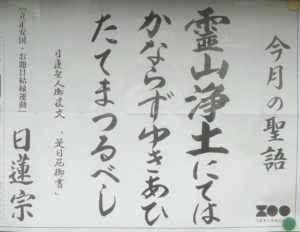 今月の聖語
霊山浄土にては
かならずゆきあひ
たてまつるべし
日蓮聖人御遺文 『是日尼御書』
『立正安国・お題目結縁運動』
日蓮宗